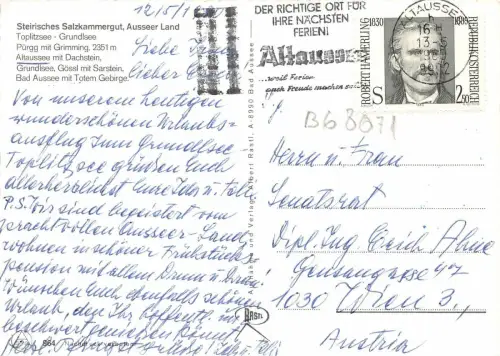 Steirisches Salzkammergut, Ausseer Land
Toplitzsee - Grundlsee
Pürgg mit Grimming, 2351 m
Altaussee mit Dachstein,
Grundlsee, Gössl mit Sarstein,
Bad Aussee mit Totem Gebirge.
12/5/1
Liebe
Lieber
Von unserem heutigen
wunderschönen Urlaubs-
ausflug zum Grundlsee
Toplitzsee grüßen Euch
allerherzlichst Eure Ida u.
P.S. Wir sind begeistert vom
prachtvollen Ausseer-Land,
wohnen in schöner Frühstücks-
pension mit allem Drum u. Dran.
Wünschen Euch ebenfalls schönen
Urlaub, den Ihr hoffentl. un-
beschwert genießen könnt.
Ida u.
864
Verlag Albert Rastl, A-8990 Bad Aussee
RASTL
DER RICHTIGE ORT FÜR
IHRE NÄCHSTEN
FERIEN!
Altaussee
...weil Ferien
auch Freude machen soll
ALTAUSSEE
16
13-5
8992
ROBERT HAMERLING
1830
1889
REPUBLIK ÖSTERREICH
S 2.50
B68071
Herrn u. Frau
Senatsrat
Dipl. Ing.
1030 Wien 3.,
Austria